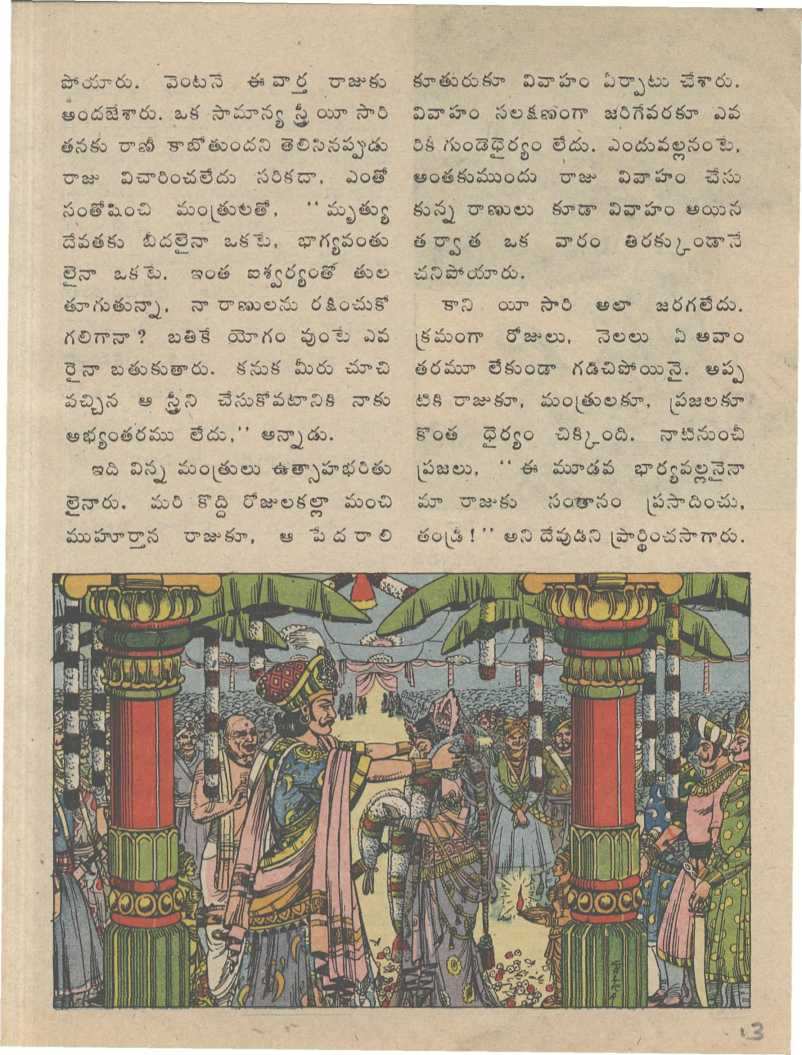 పోయారు. వెంటనే ఈ వార్త రాజుకు
అందజేశారు. ఒక సామాన్య స్త్రీ యీ సారి
తనకు రాణీ కాబోతుందని తెలిసినప్పుడు
రాజు విచారించలేదు సరికదా, ఎంతో
సంతోషించి మంత్రులతో, ''మృత్యు
దేవతకు బీదలైనా ఒకటే, భాగ్యవంతు
లైనా ఒకటే. ఇంత ఐశ్వర్యంతో తుల
తూగుతున్నా, నా రాణులను రక్షించుకో
గలిగానా? బతికే యోగం వుంటే ఎవ
రైనా బతుకుతారు. కనుక మీరు చూచి
వచ్చిన ఆ స్త్రీని చేసుకోవటానికి నాకు
అభ్యంతరము లేదు,'' అన్నాడు.
ఇది విన్న మంత్రులు ఉత్సాహభరితు
లైనారు. మరి కొద్ది రోజులకల్లా మంచి
ముహూర్తాన రాజుకూ, ఆ పేదరాలి
కూతురుకూ వివాహం ఏర్పాటు చేశారు.
వివాహం సలక్షణంగా జరిగేవరకూ ఎవ
రికీ గుండెధైర్యం లేదు. ఎందువల్లనంటే,
అంతకుముందు రాజు వివాహం చేసు
కున్న రాణులు కూడా వివాహం అయిన
తర్వాత ఒక వారం తిరక్కుండానే
చనిపోయారు.
కాని యీ సారి అలా జరగలేదు.
క్రమంగా రోజులు, నెలలు ఏ అవాం
తరమూ లేకుండా గడిచిపోయినై. అప్ప
టికి రాజుకూ, మంత్రులకూ, ప్రజలకూ
కొంత ధైర్యం చిక్కింది. నాటినుంచీ
ప్రజలు, ''ఈ మూడవ భార్యవల్లనైనా
మా రాజుకు సంతానం ప్రసాదించు,
తండ్రీ!'' అని దేవుడిని ప్రార్థించసాగారు.
13